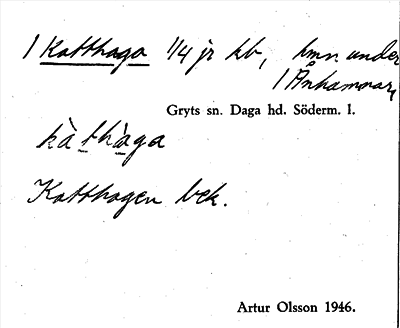 1 Katthaga 1/4 jr kb, hmn. under
1 Ånhammar,
Gryts sn. Daga hd. Söderm. l.
kàthàga
Katthagen bek.
Artur Olsson 1946.